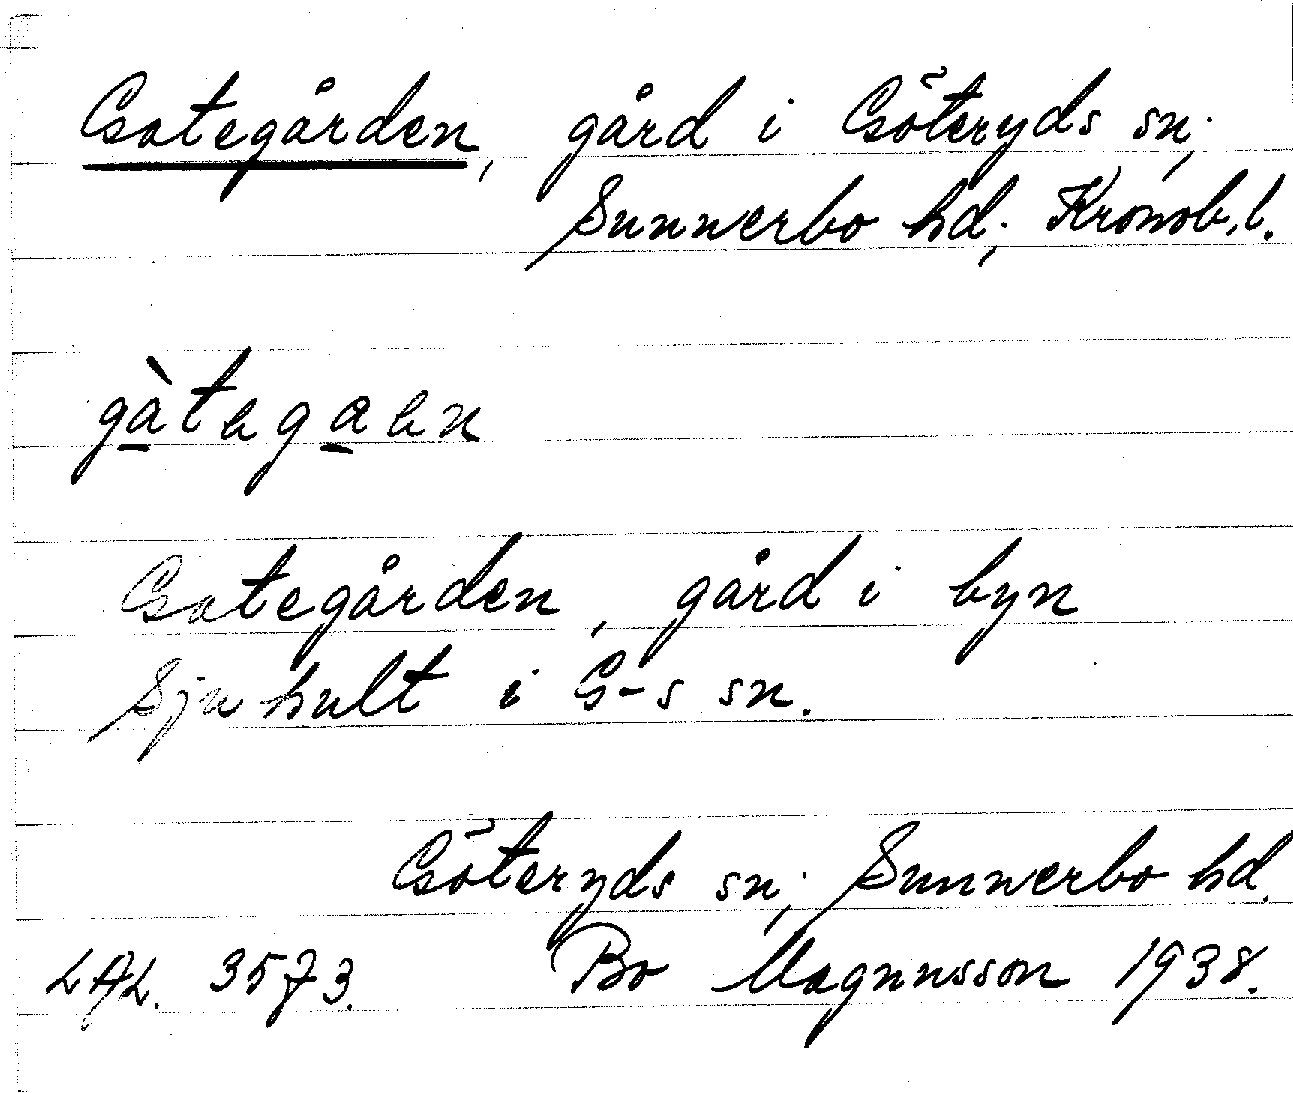 Gategården, gård i Göteryds sn;
Sunnerbo hd; Kronob. l.
gàtəgaən
Gategården, gård i byn
Sjuhult i G-s sn.
Göteryds sn; Sunnerbo hd.
LAL. 3573. Bo Magnusson 1938.